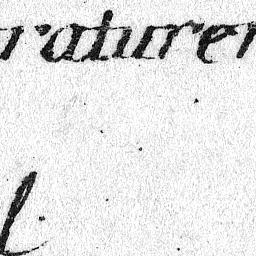 raturen
l